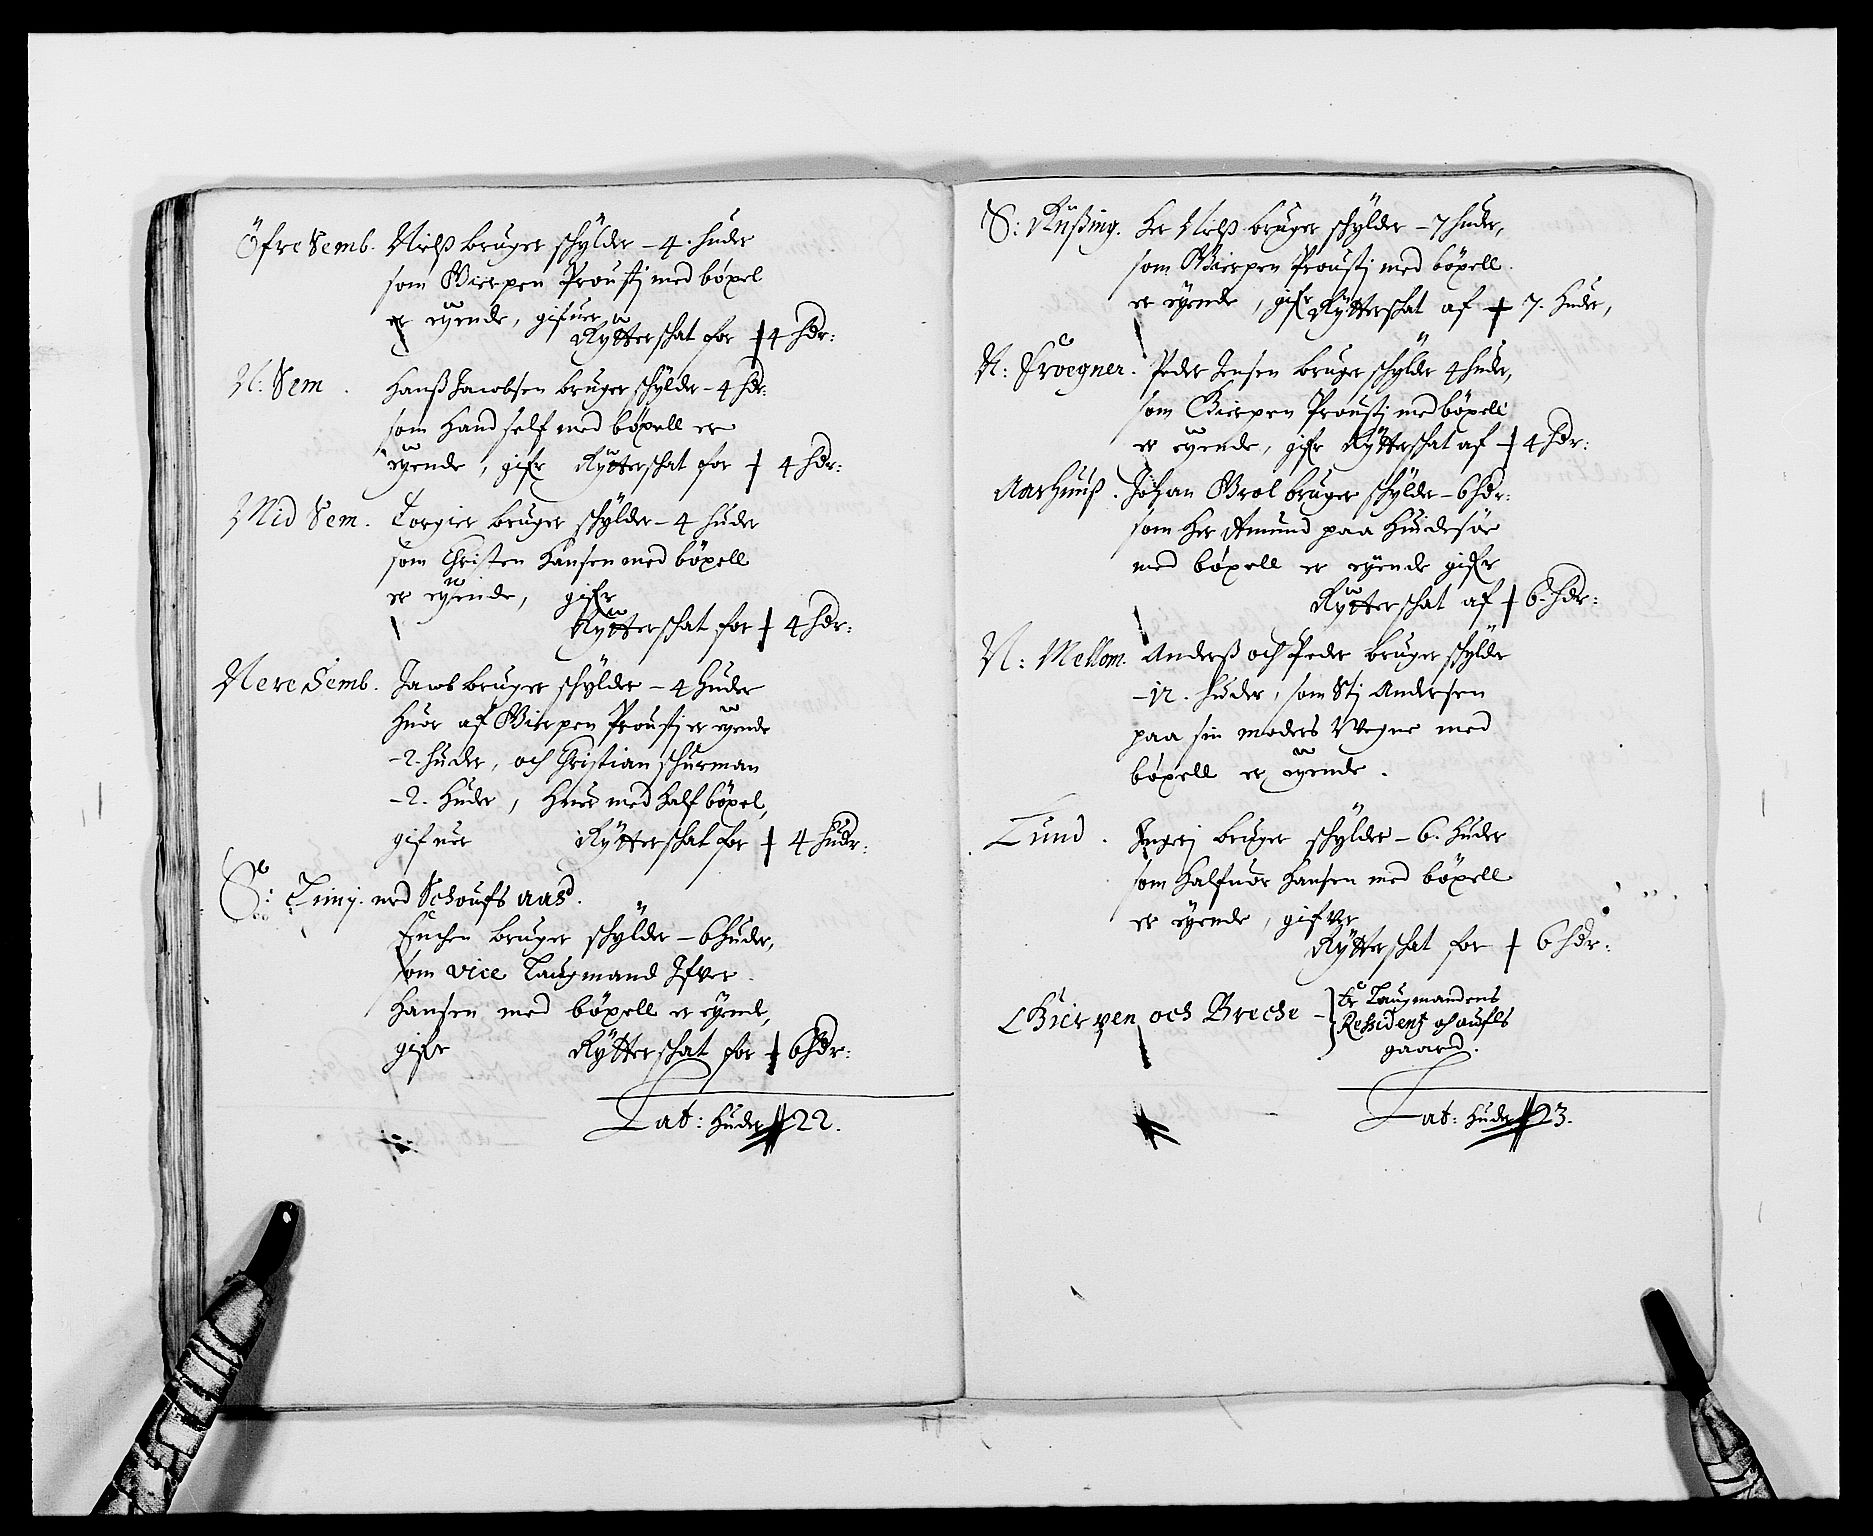 Öfre Semb. Nielß bruger schÿlder – 4. huder
som Bierpen Proustj med böxel
er eÿende, gifuer
Rÿtterschat for 4 hdr:
N: Sem. Hanß Jacobsen bruger schÿlder – 4 hdr:
som hand self med böxell er
eÿende, gifr Rÿtterschat for 4 hdr:
Mid Sem. Torgier bruger schÿlder – 4 huder
som Christen Hansen med böxell
er eÿende, gifr
Rÿtterschat for 4 hdr:
Nere Semb. Jacob bruger schÿlder – 4 huder
huor af Bierpen Proustj er eÿende
– 2. huder, och Christian Schurman
– 2. huder, huer med half böxel,
gifuer Rÿtterschat for 4 hudr:
S: Timj. med Schoufs aas.
bruger schÿlder – 6 huder,
som vice Laugmand Ifver
Hansen med böxell er eÿende,
gifr Rÿtterschat for 6 hdr:
Lat: huder 22.
S: Rüßing. Her Nielß bruger schÿlder – 7 huder,
som Bierpen Proustj med böxell
er eÿende, gifr Rÿtterschat af 7. huder,
N: Froegner. Peder Jensen bruger schÿlder 4 huder,
som Bierpen Proustj med böxell
er eÿende, gifr Rÿtterschat af 4 hdr:
Aarhuuß. Johan Brol bruger schÿlder – 6 hdr:
som Her Amund paa Huidesöe
med böxell er eÿende gifr
Rÿtterschat af 6. hdr:
N: Mellom. Anderß och Peder bruger schÿlder
– 12. huder, som Stj Andersen
paa sin moders Wegne med
böxell er eÿende.
Lund. Ingerj bruger schÿlder – 6. huder
som Halfuor Hansen med böxell
er eÿende, gifver
Rÿtterschat for 6 hdr:
Bierven och Breche – er Laugmandens
Ressidentz och aufls
gaard.
Lat: huder 23.